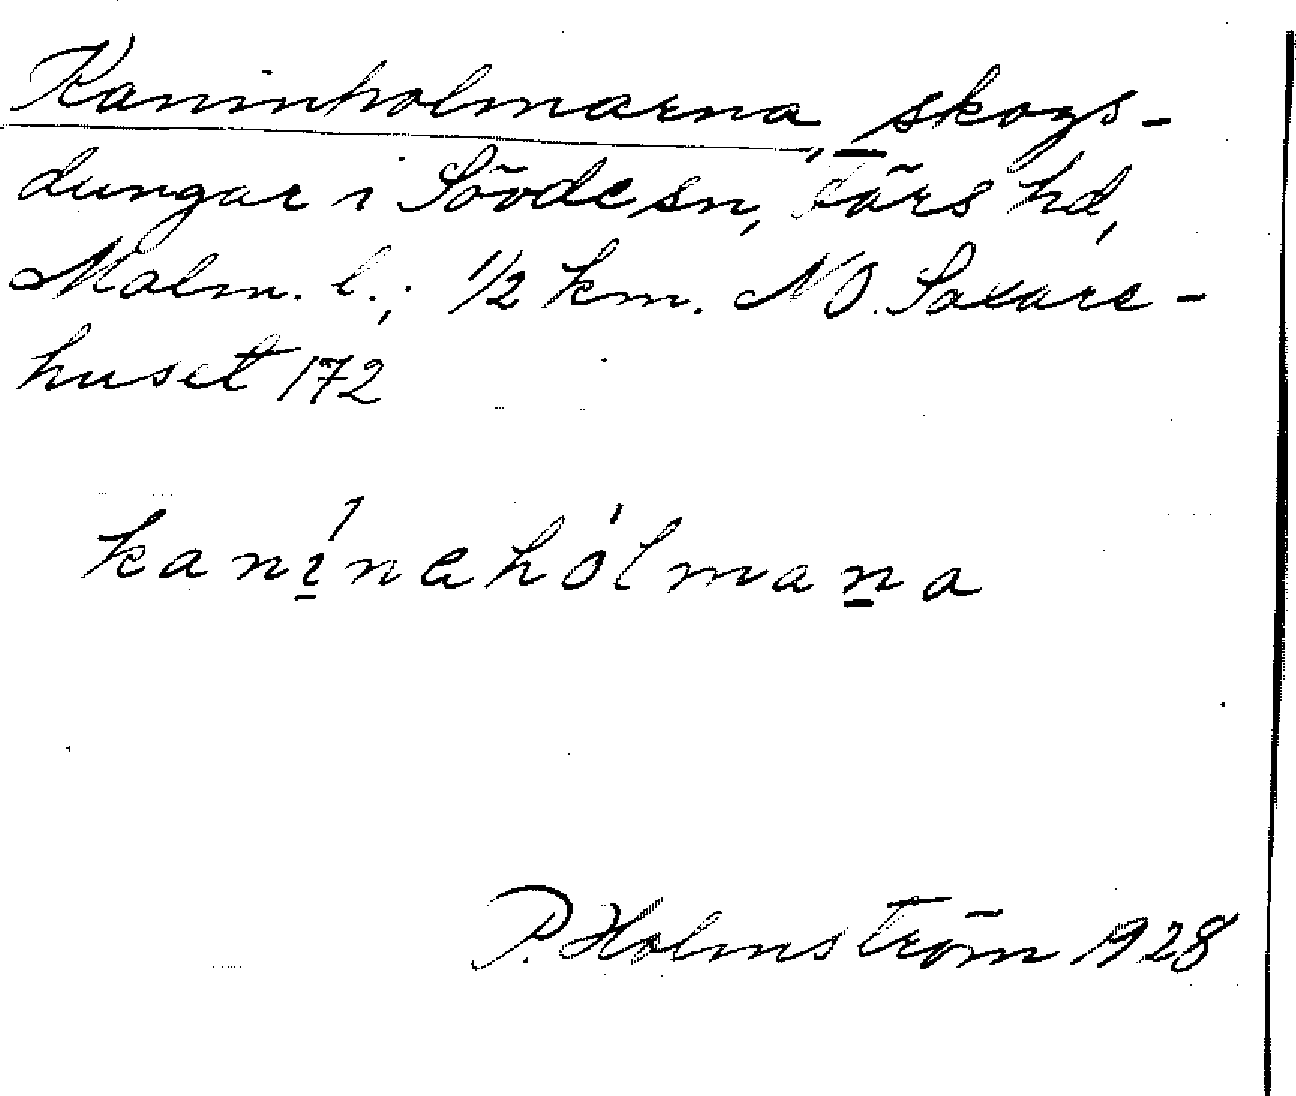 Kaninholmarna, skogs-
dungar i Sövde sn, Färs hd,
Malm. l.; 1/2 km. NO. Saxare-
huset 172
kanínahólmana
P. Holmström 1928